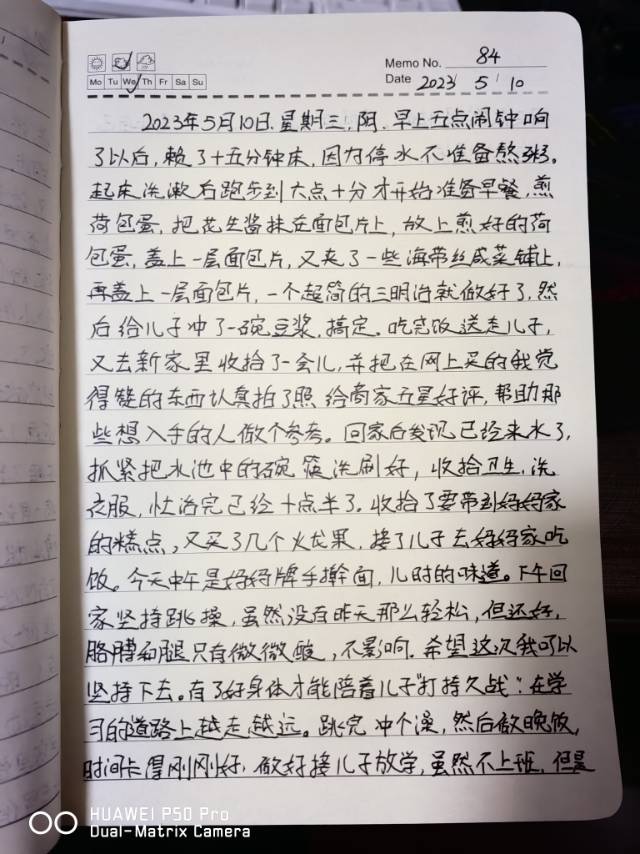 Mo Tu We Th Fr Sa Su
Memo No. 84
Date 2023 / 5 / 10
2023年5月10日.星期三,阴.早上五点闹钟响
了以后,赖了十五分钟床,因为停水不准备熬粥。
起床洗漱后跑步到六点十分才开始准备早餐,煎
荷包蛋,把花生酱抹在面包片上,放上煎好的荷
包蛋,盖上一层面包片,又夹了一些海带丝咸菜铺上,
再盖上一层面包片,一个超简的三明治就做好了,然
后给儿子冲了一碗豆浆,搞定。吃完饭送走儿子,
又去新家里收拾了一会儿,并把在网上买的我觉
得链的东西认真拍了照给商家五星好评,帮助那
些想入手的人做个参考。回家后发现已经来水了,
抓紧把水池中的碗筷洗刷好,收拾卫生,洗
衣服,忙治完已经十点半了。收拾了要带到好好家
的糕点,又买了几个火龙果,接了儿子去好好家吃
饭。今天中午是好好牌手擀面,儿时的味道。下午回
家坚持跳操,虽然没有昨天那么轻松,但还好,
胳膊和腿只有微微酸,不影响.希望这次我可以
坚持下去。有了好身体才能陪着儿子"打持久战":在学
习的道路上越走越远。跳完冲个澡,然后做晚饭,
时间卡得刚刚好.做好接儿子放学,虽然不上班,但是
HUAWEI P50 Pro
Dual-Matrix Camera